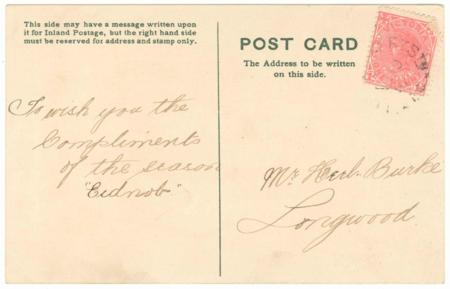 This side may have a message written upon
it for Inland Postage, but the right hand side
must be reserved for address and stamp only.
To wish you the
Compliments
of the season
"Eidnob"
POST CARD
The Address to be written
on this side.
Mr Herb. Burke
Longwood